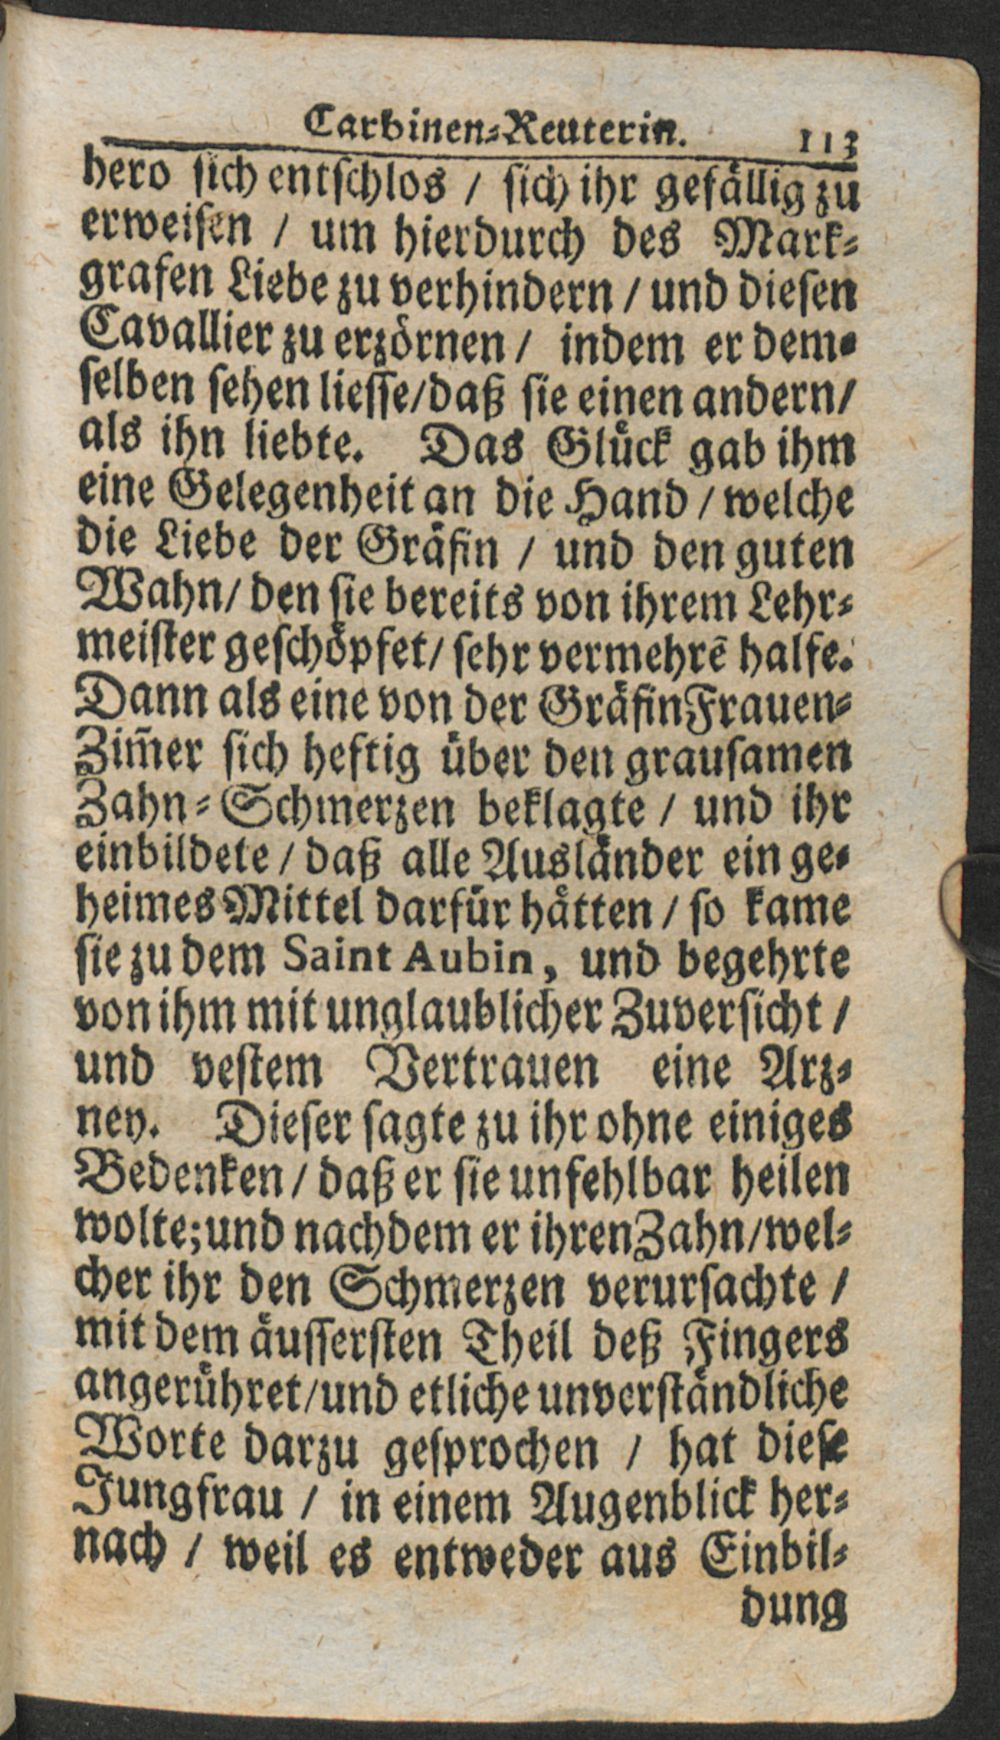 Carbinen-Reuterin. 113
hero sich entschlos / sich ihr gefällig zu
erweisen / um hierdurch des Mark-
grafen Liebe zu verhindern / und diesen
Cavallier zu erzörnen / indem er dem-
selben sehen liesse/daß sie einen andern/
als ihn liebte. Das Glück gab ihm
eine Gelegenheit an die Hand / welche
die Liebe der Gräfin / und den guten
Wahn/ den sie bereits von ihrem Lehr-
meister geschöpfet/ sehr vermehrē halfe.
Dann als eine von der Gräfin Frauen-
Zim̄er sich heftig über den grausamen
Zahn-Schmerzen beklagte / und ihr
einbildete / daß alle Ausländer ein ge-
heimes Mittel darfür hätten / so kame
sie zu dem Saint Aubin, und begehrte
von ihm mit unglaublicher Zuversicht /
und vestem Vertrauen eine Arz-
ney. Dieser sagte zu ihr ohne einiges
Bedenken / daß er sie unfehlbar heilen
wolte; und nachdem er ihren Zahn/wel-
cher ihr den Schmerzen verursachte /
mit dem äussersten Theil deß Fingers
angerühret/und etliche unverständliche
Worte darzu gesprochen / hat diese
Jungfrau / in einem Augenblick her-
nach / weil es entweder aus Einbil-
dung